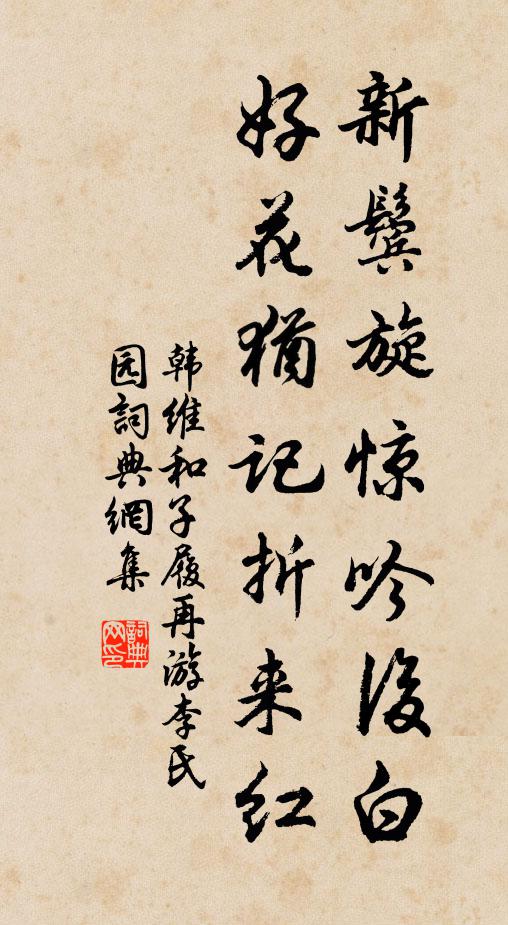 新鬓旋惊吟後白
好花猶记折来红
韩维和子履再游李氏
园詞典網集
詞典網印